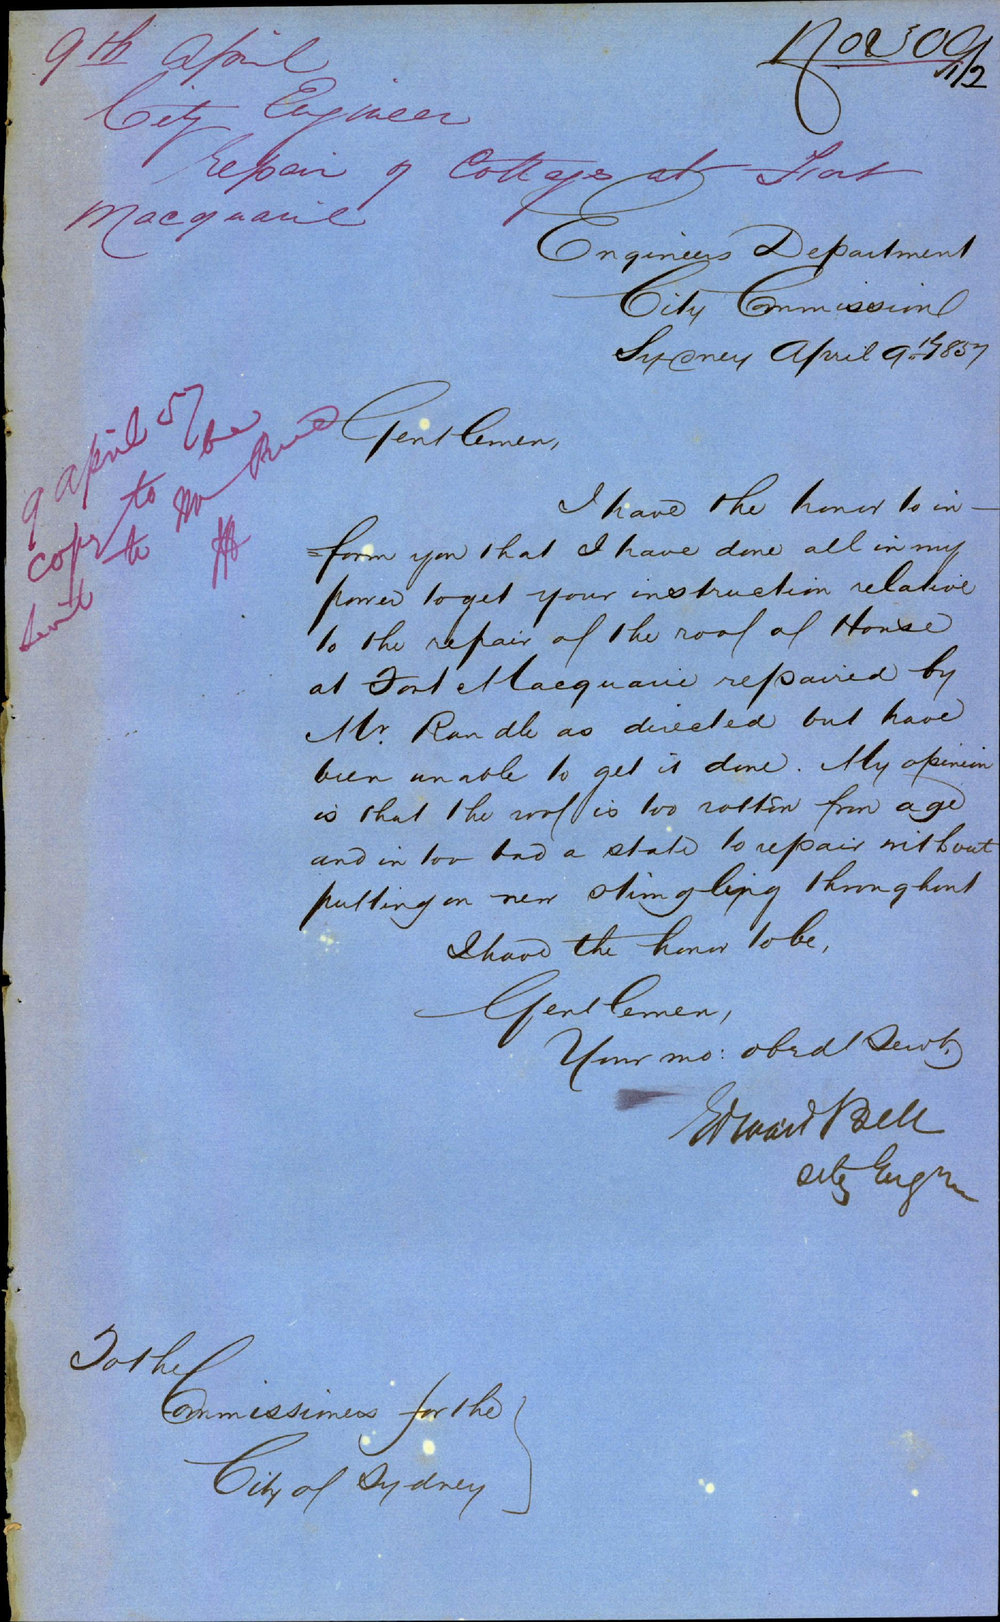 9th April
City Engineer
repair of Cottage at Fort
Macquarie
No 309
1/2
Engineers Department
City Commission
Sydney April 9th 1857
9 April 57
copy to be
sent to Mr
Gentlemen,
I have the honor to in-
=form you that I have done all in my
power to get your instruction relative
to the repair of the roof of House
at Fort Macquarie repaired by
Mr. Randle as directed but have
been unable to get it done. My opinion
is that the roof is too rotten from age
and in too bad a state to repair without
putting on new shingling throughout
I have the honor to be,
Gentlemen,
Your mo: obedt Servt,
Edward Bell
City Engnr
To the
Commissioners for the
City of Sydney